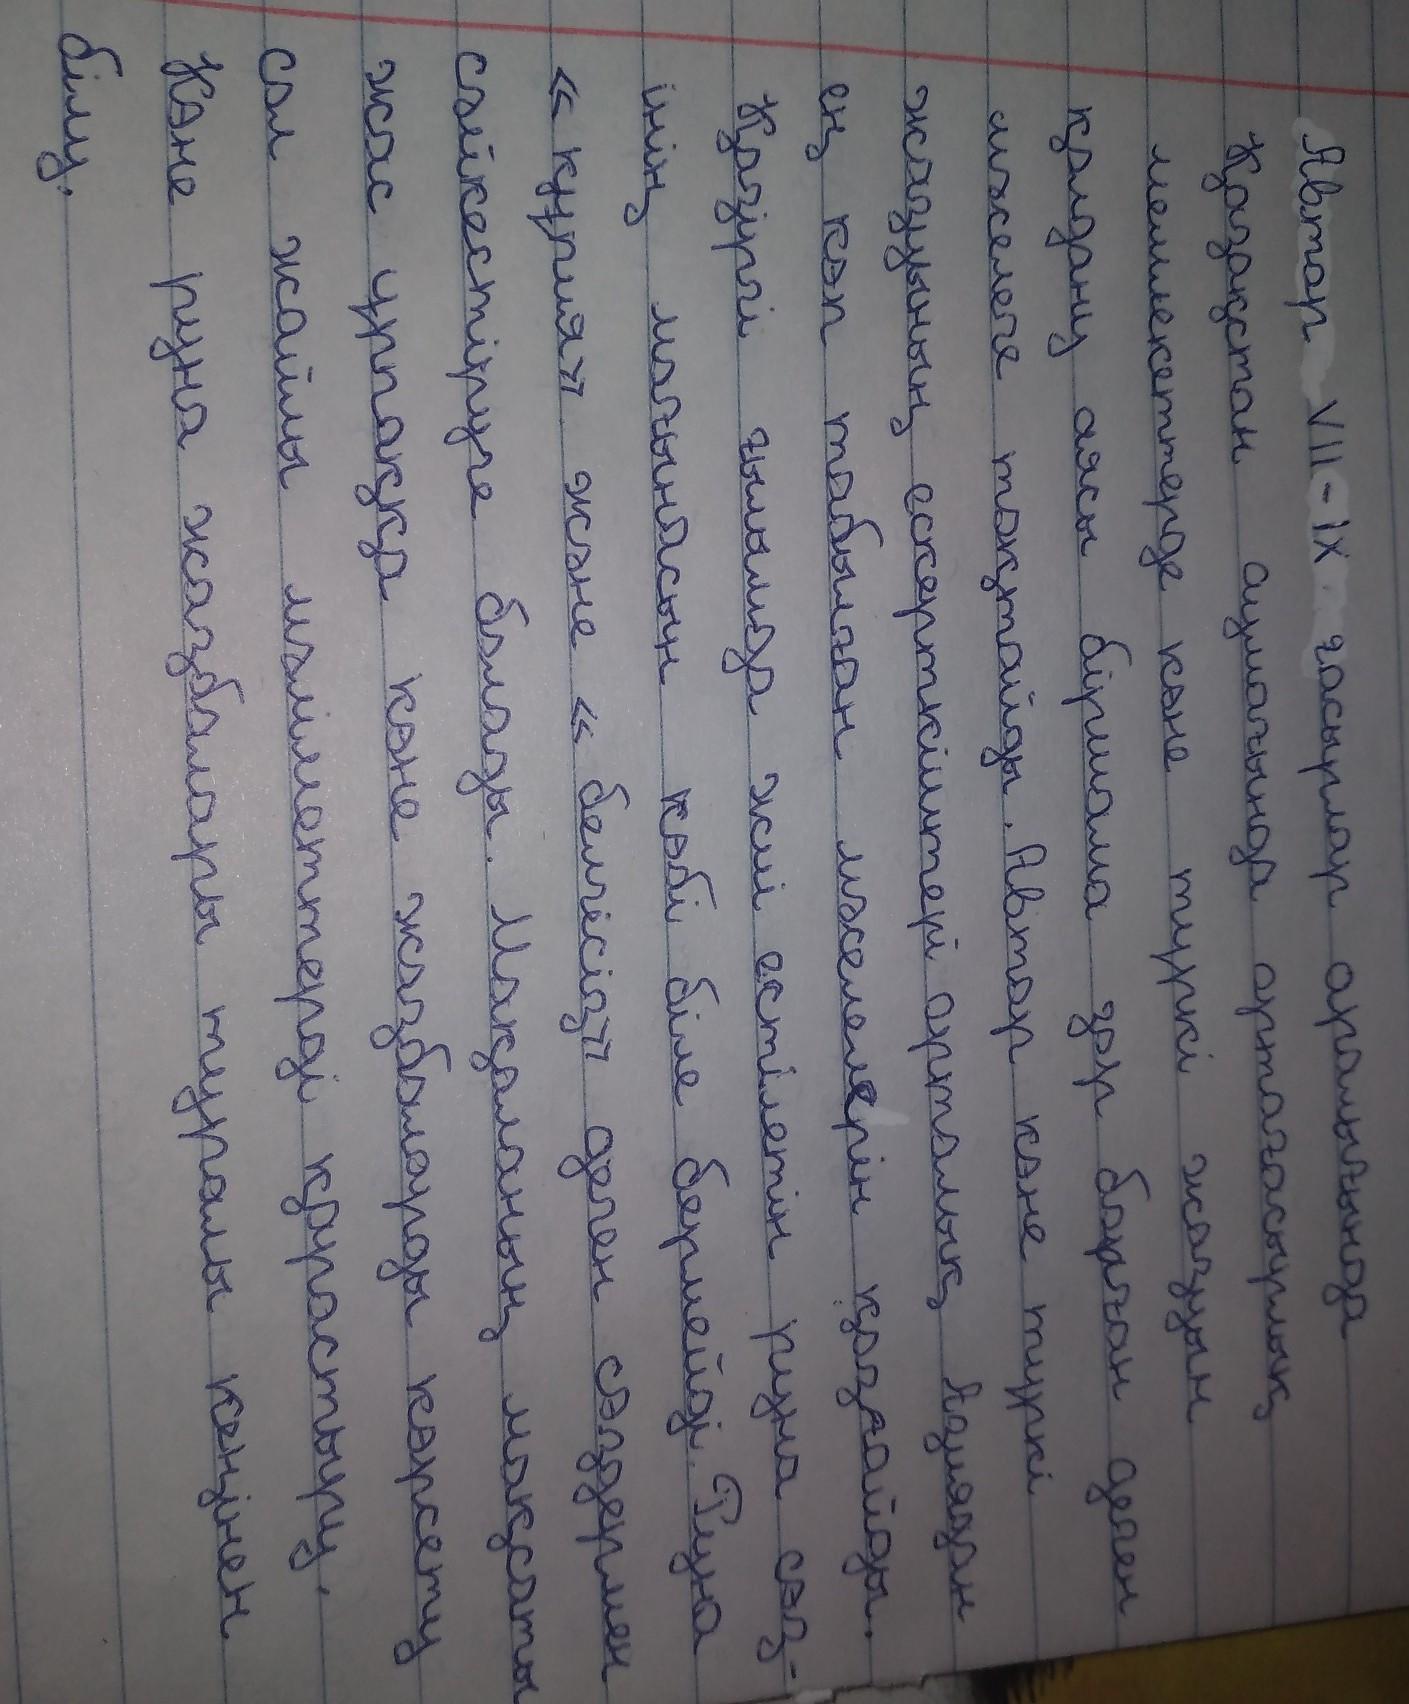 Автор VII-IX ғасырлар аралығында
Қазақстан аумағында ортағасырлық
мемлекеттерде көне түркі жазуын
қолдану аясы біршама зор болған деген
мәселеге тоқтайды. Автор көне түркі
жазуының ескерткіштері орталық Азиядан
ең көп табылған мәселелерін қозғайды.
Қазіргі ғылымда жиі естілетін руна сөз-
інің мағынасын көбі біле бермейді. Руна
«құпия» және «белгісіз» деген сөздермен
сәйкестіруге болады. Мақаланың мақсаты
жас ұрпаққа көне жазбаларды көрсету
сол жайлы мәліметтерді қарастыру.
Көне руна жазбалары туралы кеңінен
білу.